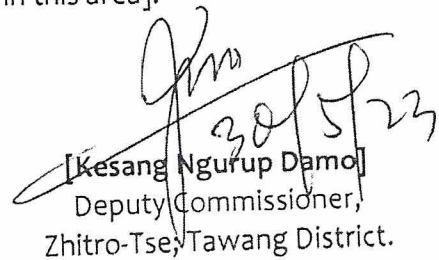 in this area].
30/5/23
[Kesang Ngurup Damo]
Deputy Commissioner,
Zhitro-Tse, Tawang District.